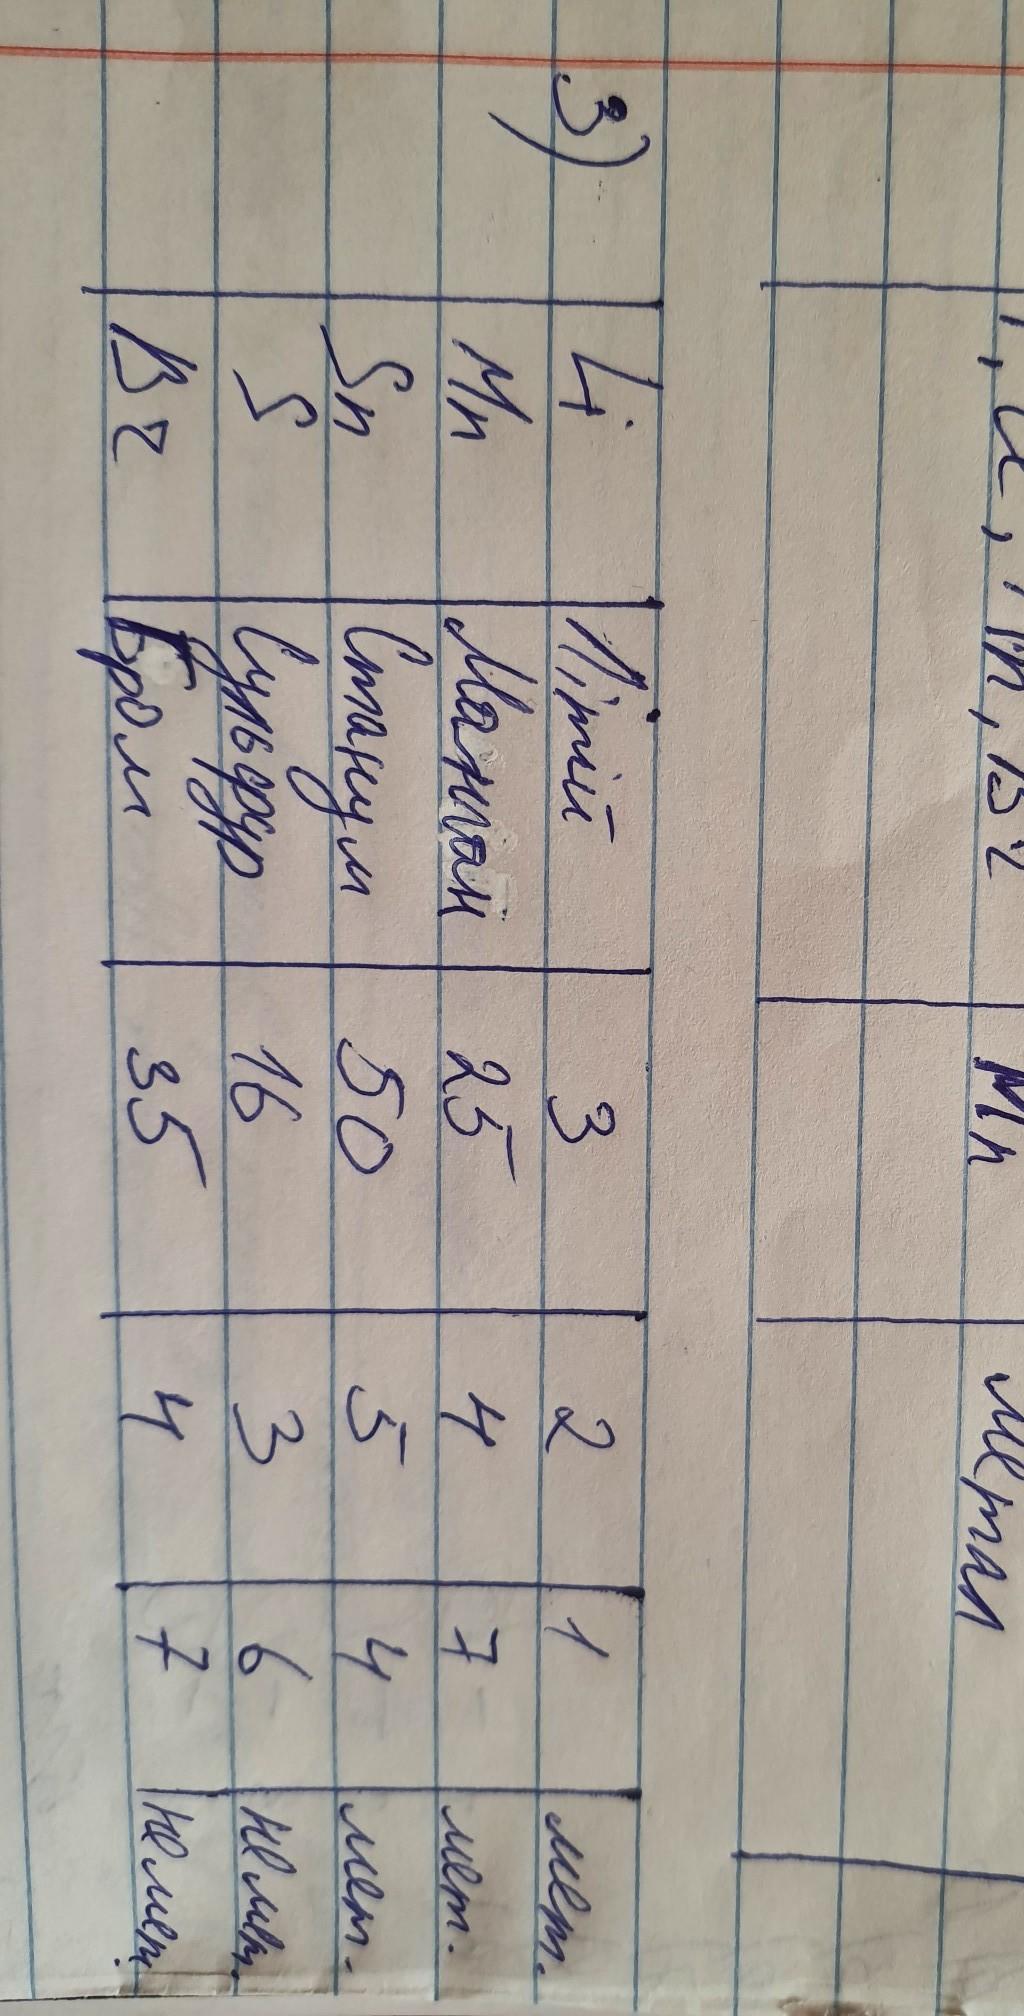 F, Cl, Mn, Br Mn метал
3) Li Літій 3 2 1 мет.
Mn Манган 25 4 7 мет.
Sn Станум 50 5 4 мет.
S Сульфур 16 3 6 Немет.
Br Бром 35 4 7 Немет.